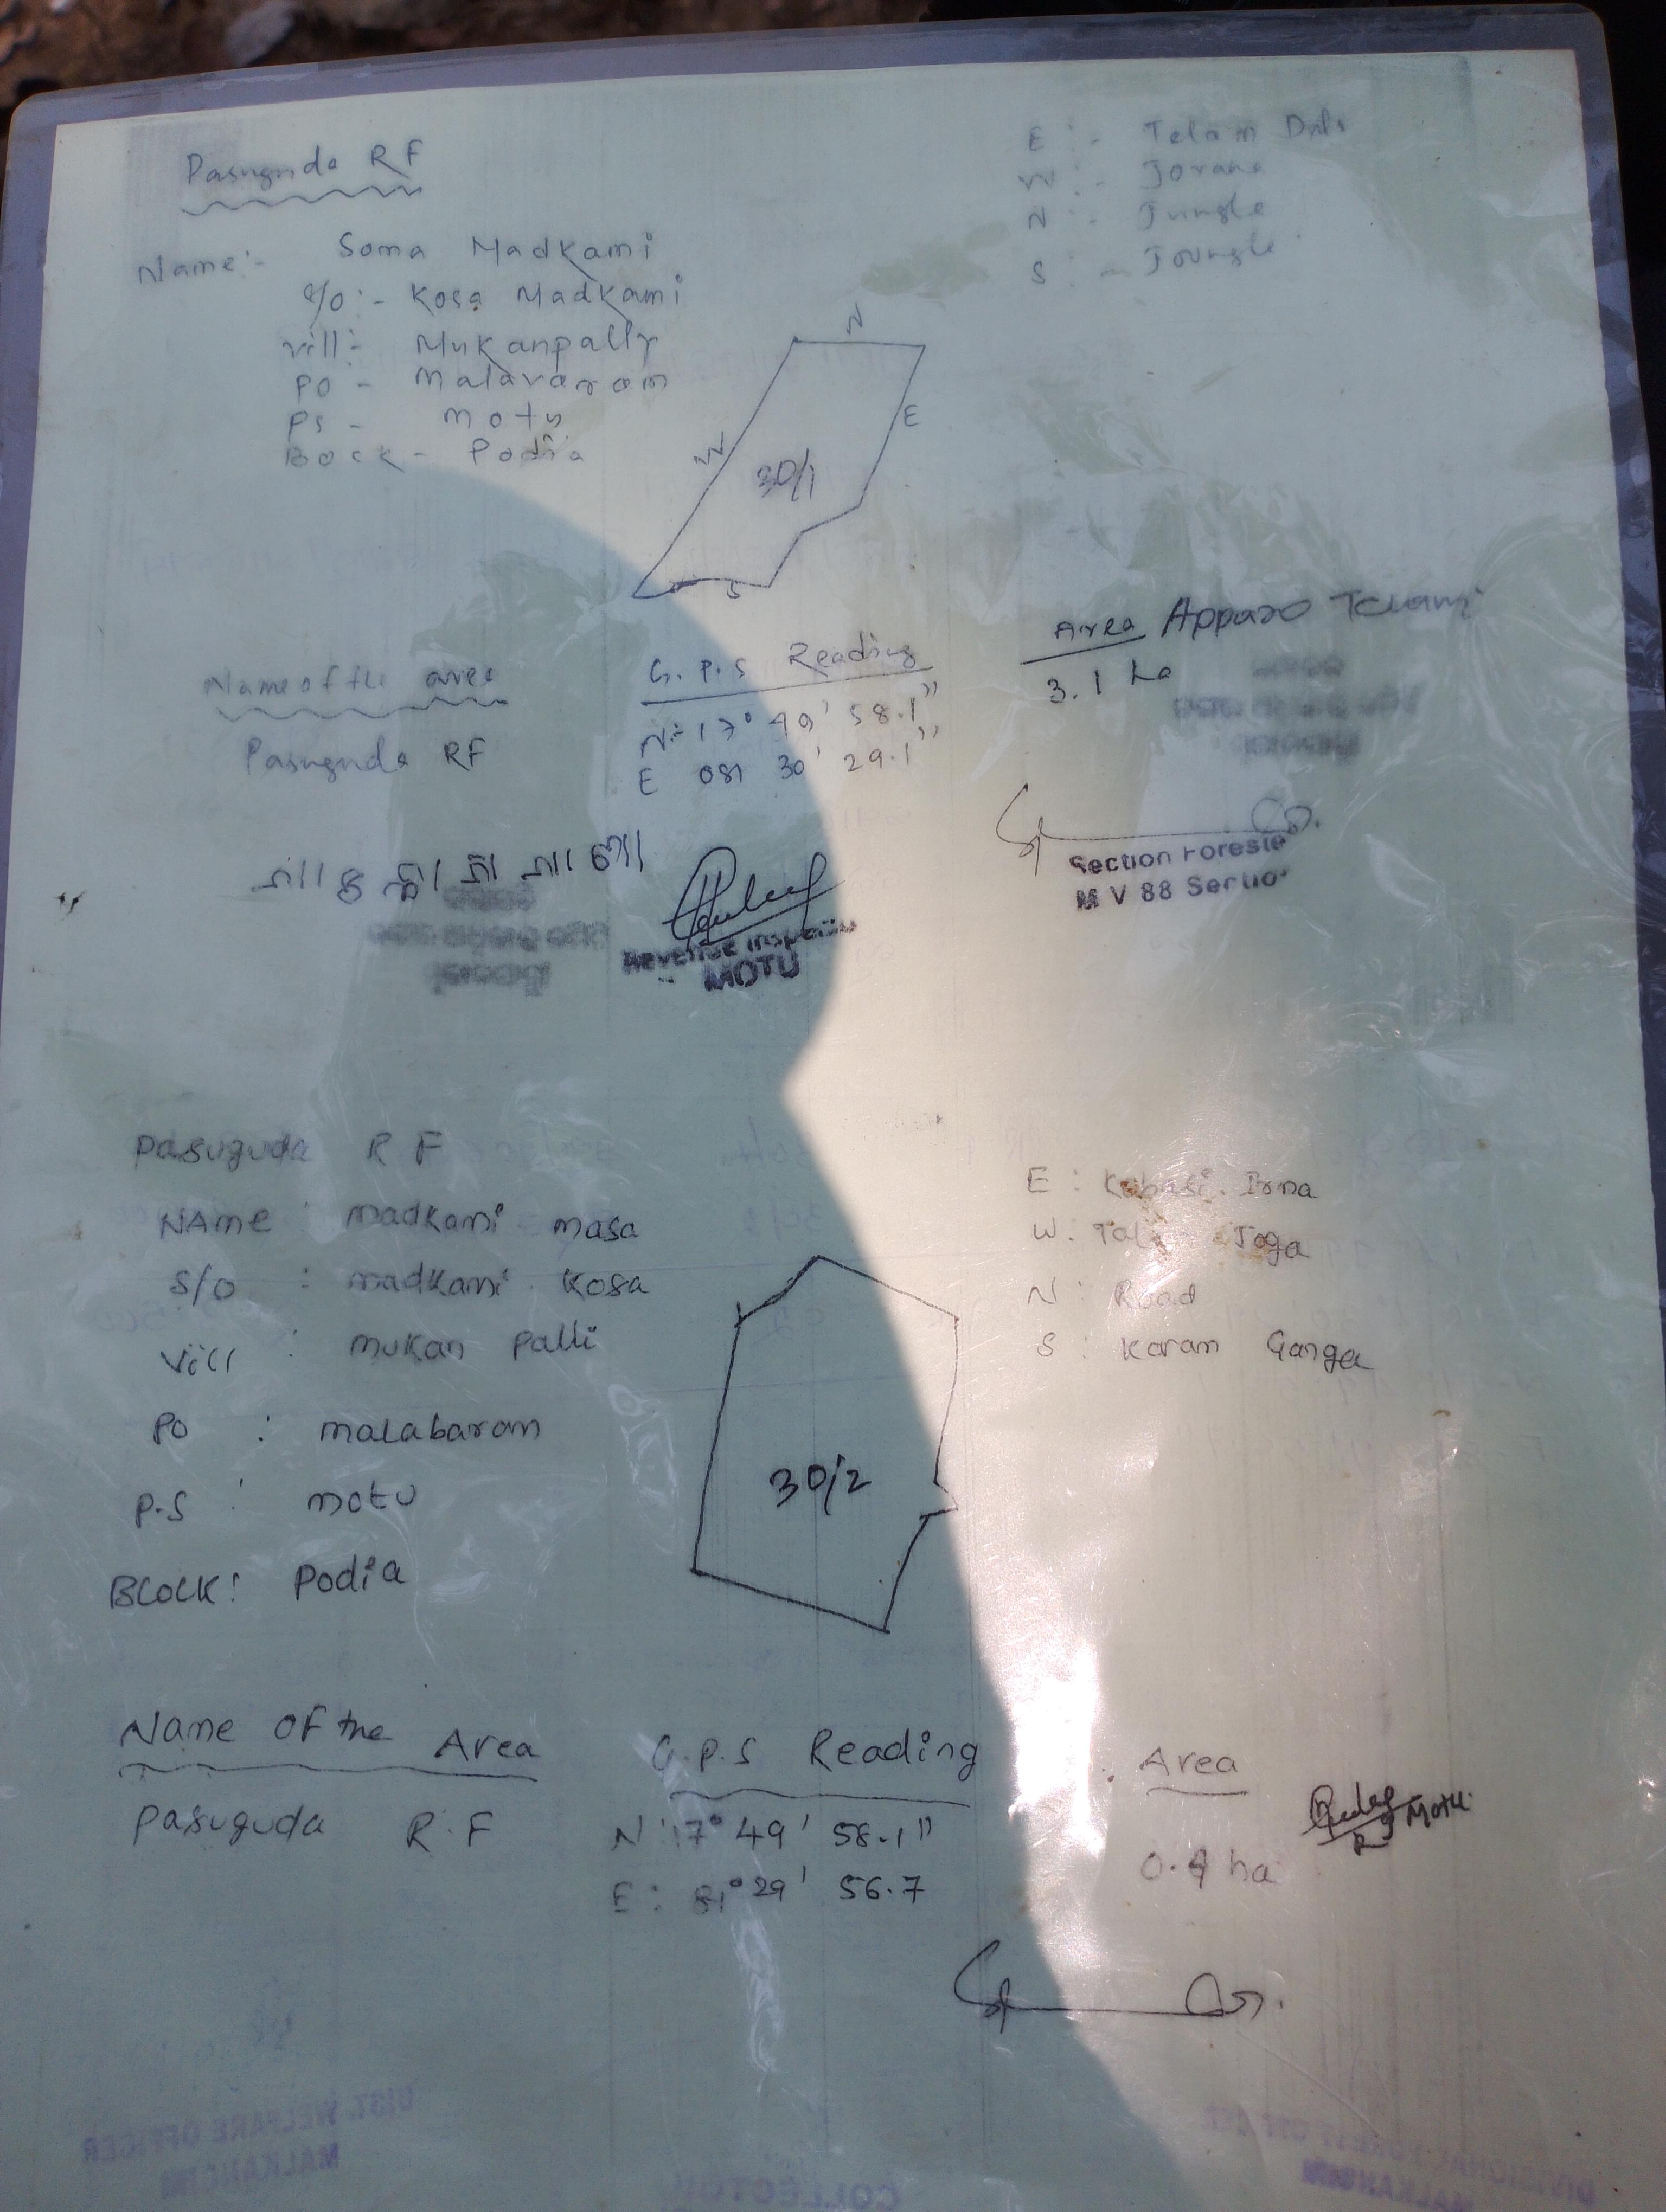 Pasuguda RF
E :- Telam
W :-
N :- Jungle
S :- Joungle
Name:- Soma Madkami
S/o :- Kosa Madkami
vill:- Mukanpally
PO - Malavaram
PS - motu
Bock - Podia
N
E
W
30/1
S
Name of the area
G. P. S Reading
Area Apparo
Pasuguda RF
N:- 17° 49' 58.1"
3.1 ha
E 081 30' 29.1"
Section Foreste
M V 88 Sectio
Revenue Inspecto
MOTU
Pasuguda R F
NAme : madkami masa
S/o : madkami kosa
Vill : mukan palli
PO : malabaram
P.S : motu
BLOCK: Podia
E : Kabasi
W : Joga
N : Road
S : Karam Ganga
30/2
Name OF the Area
G.P.S Reading
Area
Pasuguda R.F
N: 17° 49' 58.1"
E : 81° 29' 56.7
0.4 ha
Motu
DIST. WELFARE OFFICER
MALKANGIRI
COLLECTOR
DIVISIONAL FOREST OFFICER
MALKANGIRI